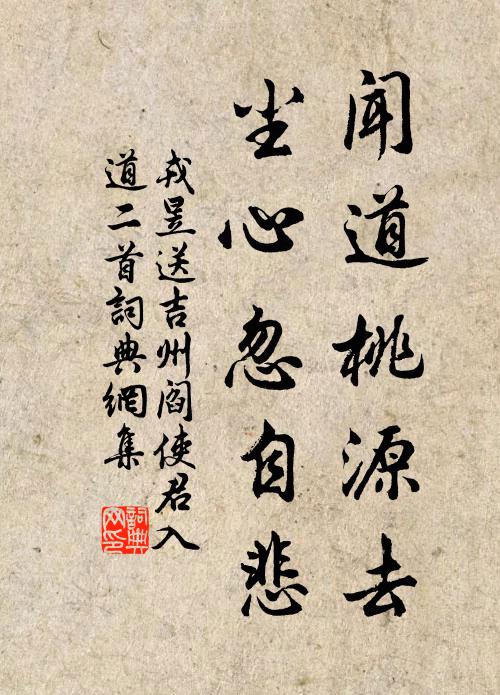 闻道桃源去
尘心忽自悲
戎昱送吉州阎使君入
道二首詞典網集
詞典
网印